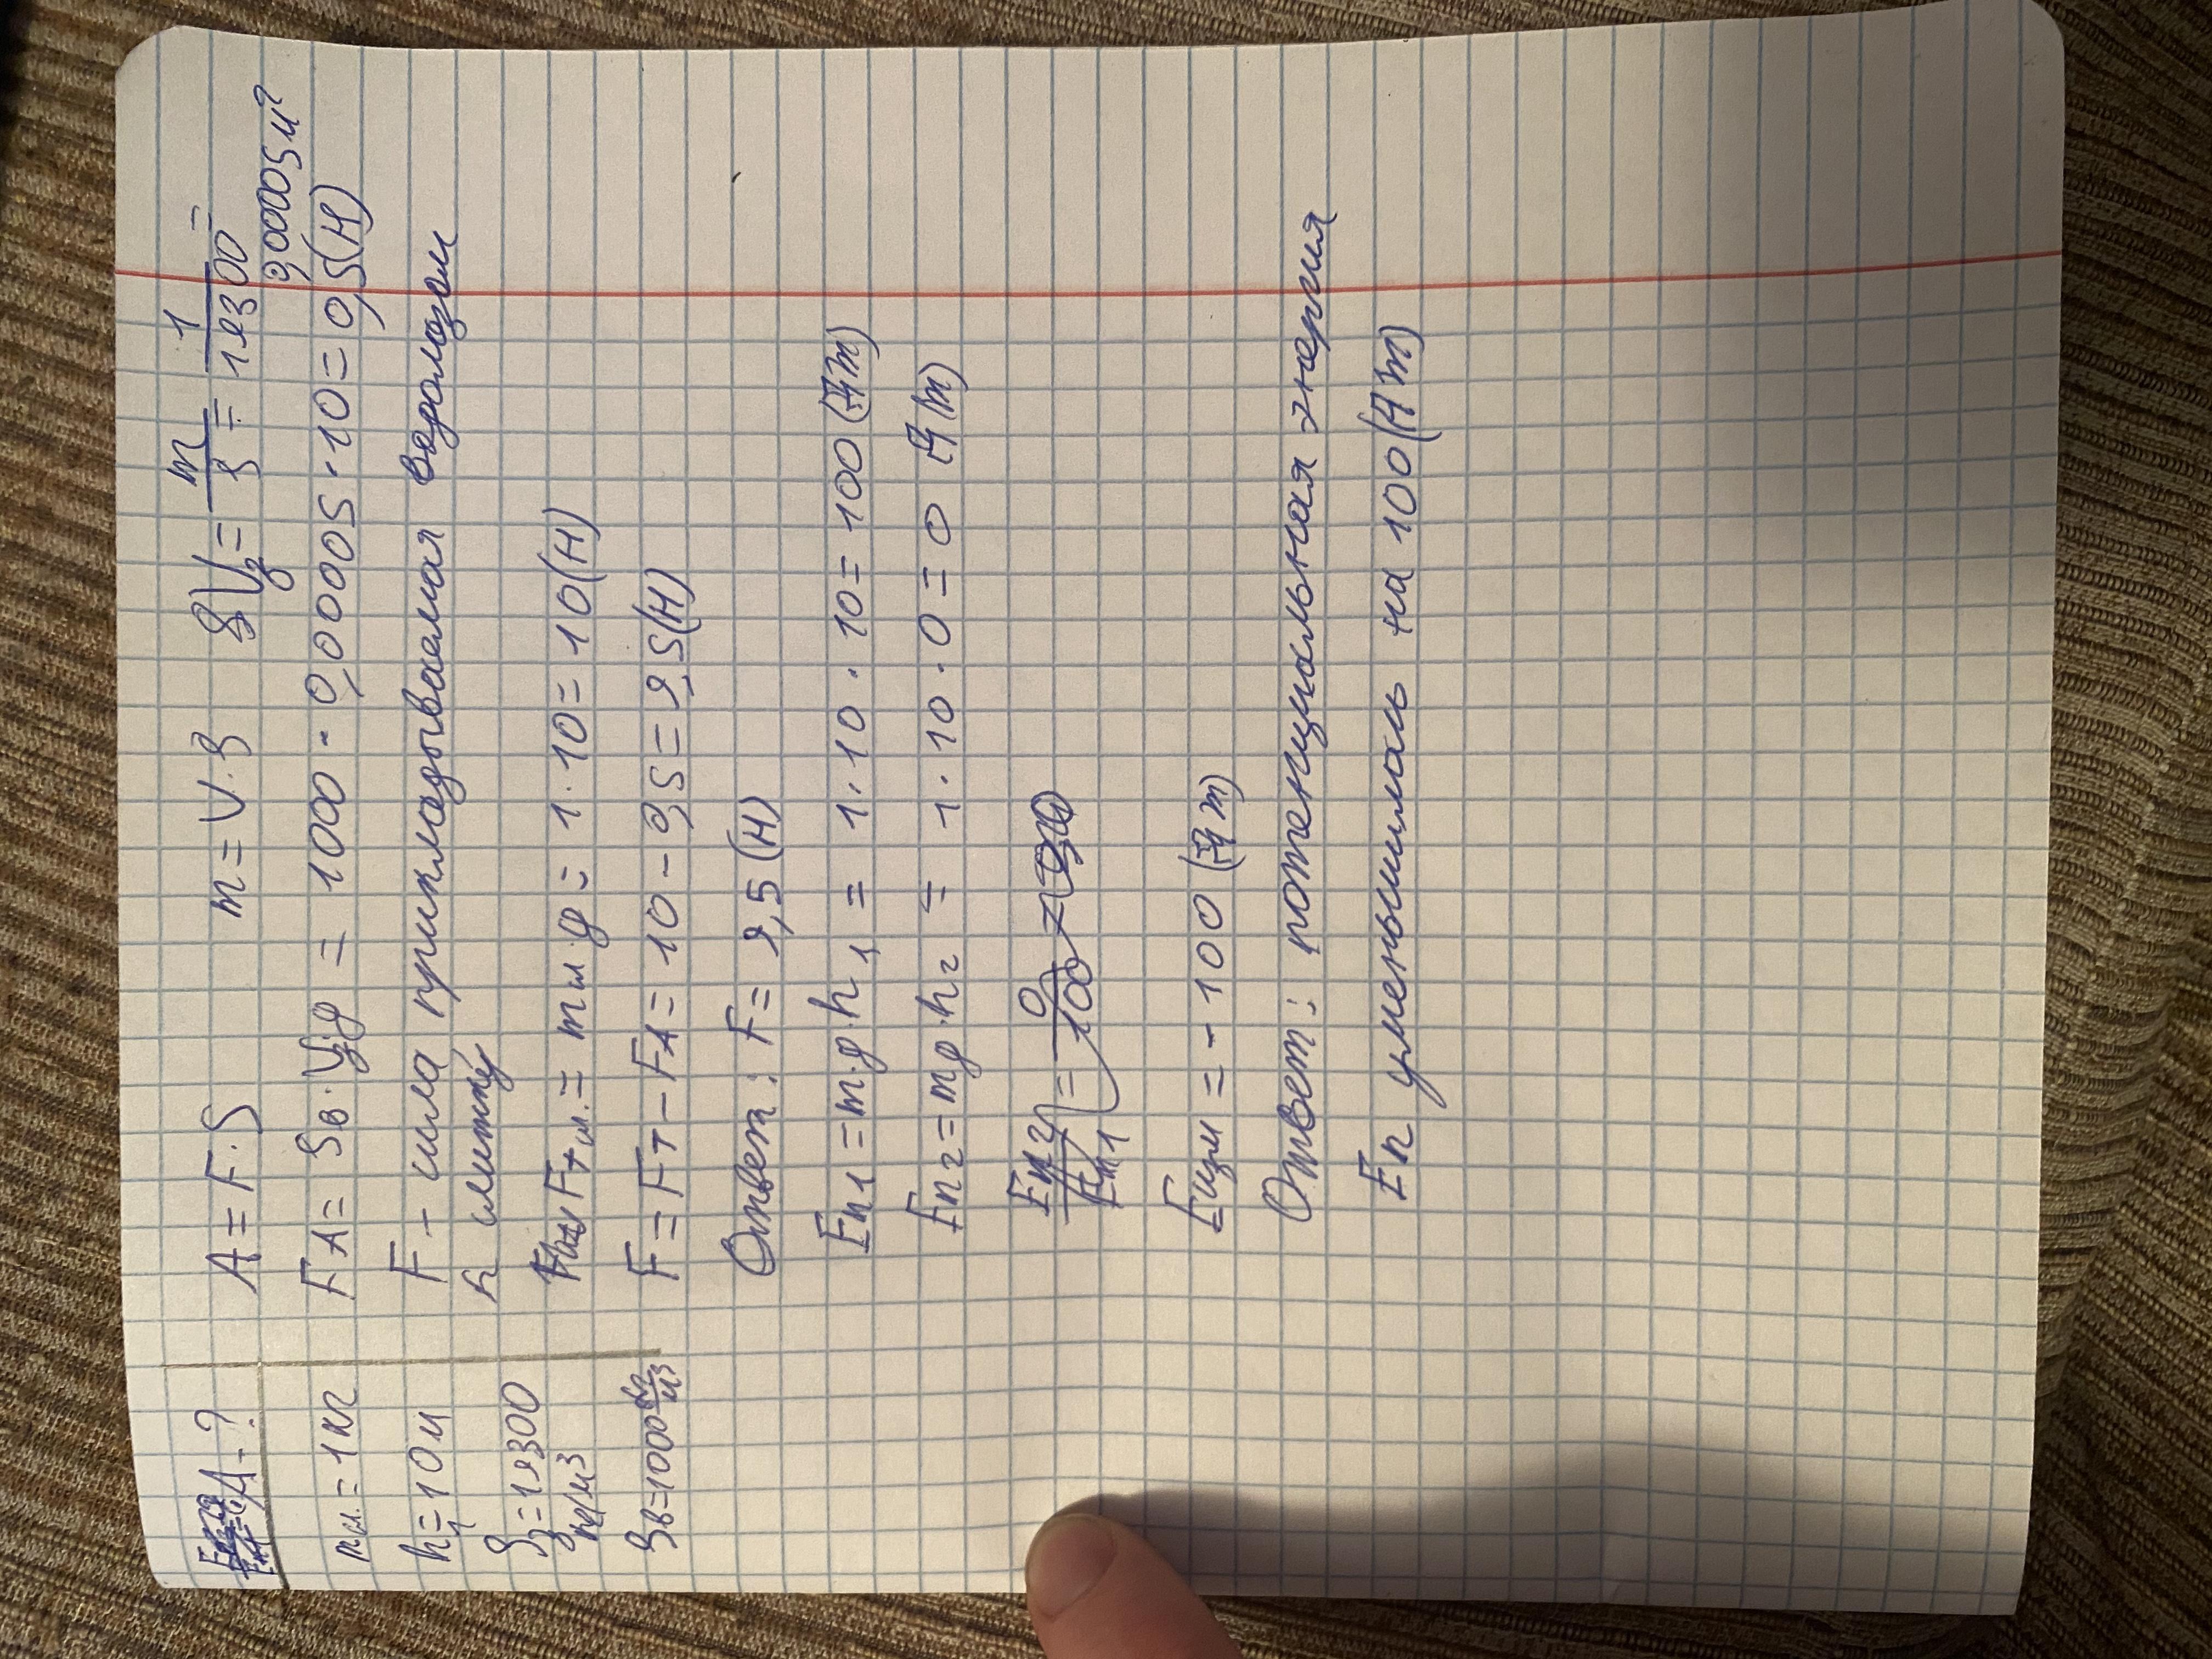 A - ?
mсл. = 1 кг
h₁ = 10 м
ρз = 19300
кг/м3
ρв = 1000 кг/м3
A = F · S   m = V · ρ   Vз = m/ρ = 1/19300 =
0,00005 м2
FA = ρв · Vз g = 1000 · 0,00005 · 10 = 0,5 (Н)
F - сила прикладываемая водолазом
к слитку
Fт сл. = mсл g = 1 · 10 = 10 (Н)
F = Fт - FA = 10 - 0,5 = 9,5 (Н)
Ответ: F = 9,5 (Н)
Eп1 = m · g · h₁ = 1 · 10 · 10 = 100
Eп2 = m g · h₂ = 1 · 10 · 0 = 0
Eп2/Eп1 = 0/100
Eизм = - 100
Ответ: потенциальная энергия
Eп уменьшилась на 100